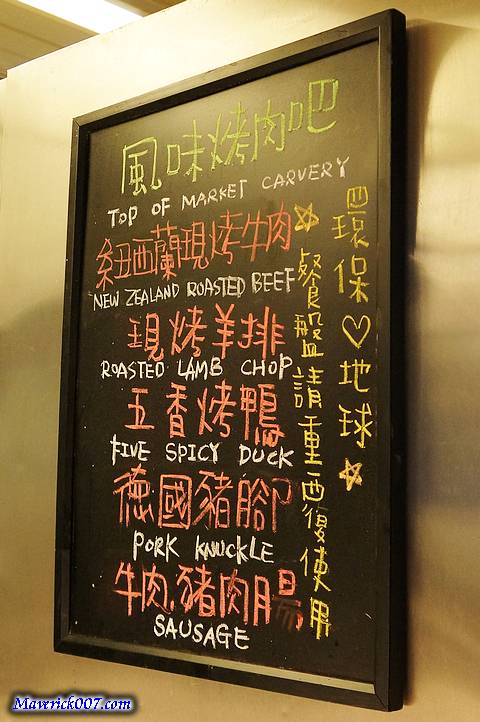 風味烤肉吧
TOP OF MARKET CARVERY
紐西蘭現烤牛肉
NEW ZEALAND ROASTED BEEF
現烤羊排
ROASTED LAMB CHOP
五香烤鴨
FIVE SPICY DUCK
德國豬腳
PORK KNUCKLE
牛肉、豬肉腸
SAUSAGE
環保♡地球☆
☆餐盤請重覆使用
Maverick007.com